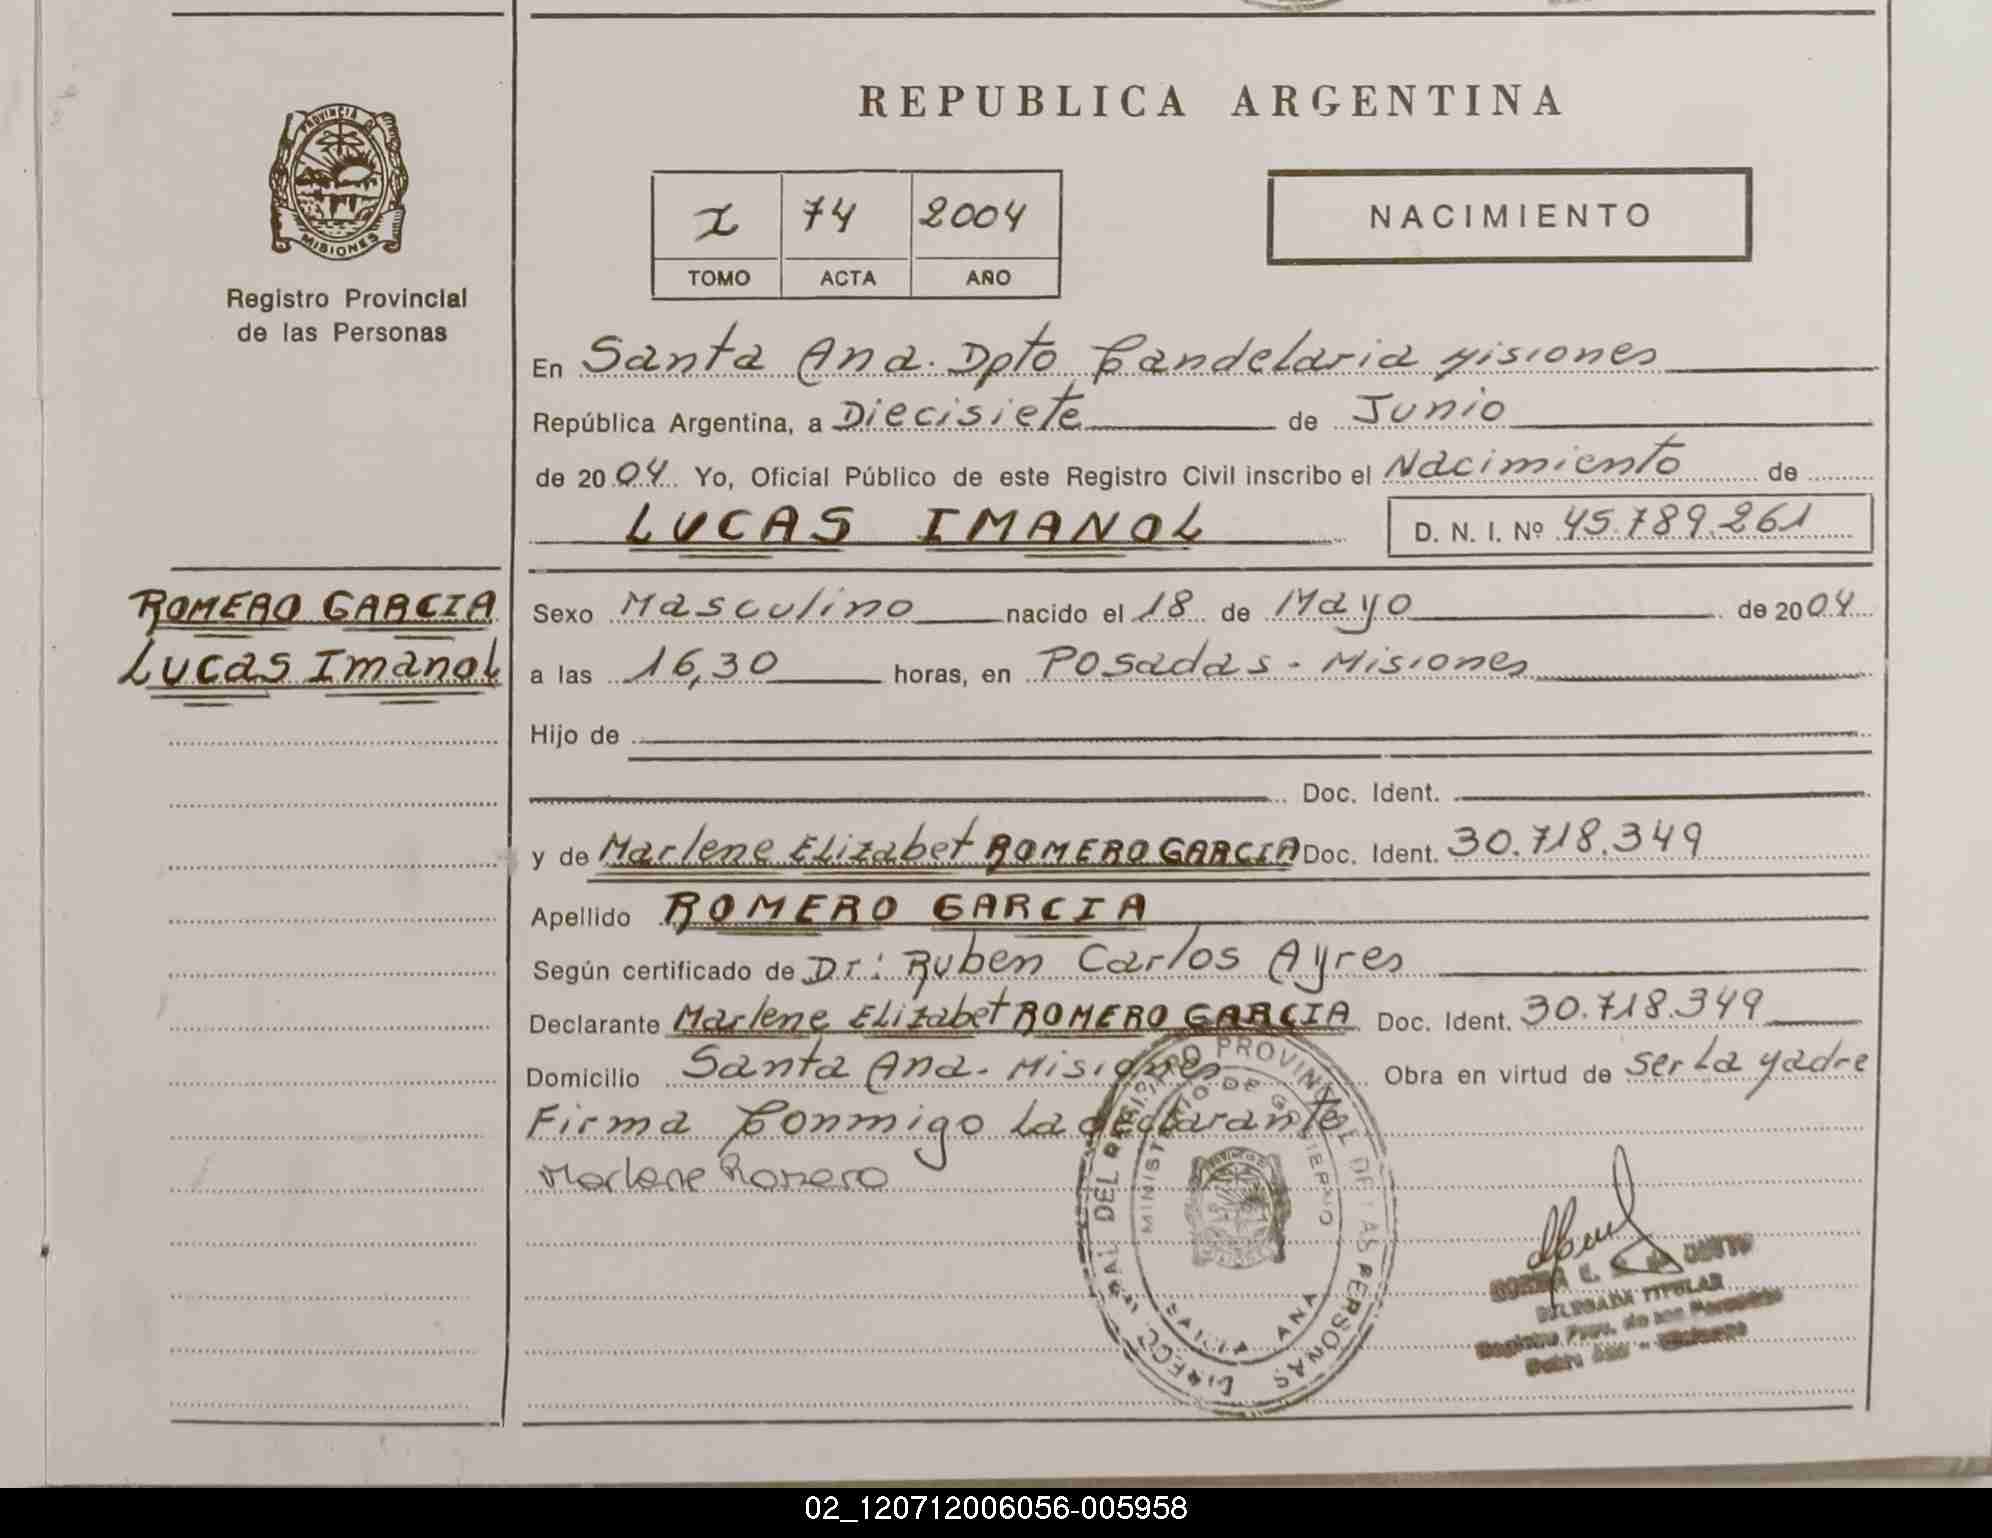 REPUBLICA ARGENTINA
PROVINCIA DE
MISIONES
Registro Provincial
de las Personas
I 74 2004
TOMO ACTA AÑO
NACIMIENTO
En Santa Ana. Dpto Candelaria Misiones
República Argentina, a Diecisiete de Junio
de 2004 Yo, Oficial Público de este Registro Civil inscribo el Nacimiento de
LUCAS IMANOL D. N. I. Nº 45.789.261
ROMERO GARCIA
Lucas Imanol
Sexo Masculino nacido el 18 de Mayo de 2004
a las 16,30 horas, en Posadas - Misiones
Hijo de
Doc. Ident.
y de Marlene Elizabet ROMERO GARCIA Doc. Ident. 30.718.349
Apellido ROMERO GARCIA
Según certificado de Dr: Ruben Carlos Ayres
Declarante Marlene Elizabet ROMERO GARCIA Doc. Ident. 30.718.349
Domicilio Santa Ana - Misiones Obra en virtud de ser La Madre
Firma Conmigo La declarante
Marlene Romero
DIRECC. GRAL DEL REGISTRO PROVINCIAL DE LAS PERSONAS
MINISTERIO DE GOBIERNO
SANTA ANA
DELEGADA TITULAR
Registro Prov. de las Personas
02_120712006056-005958